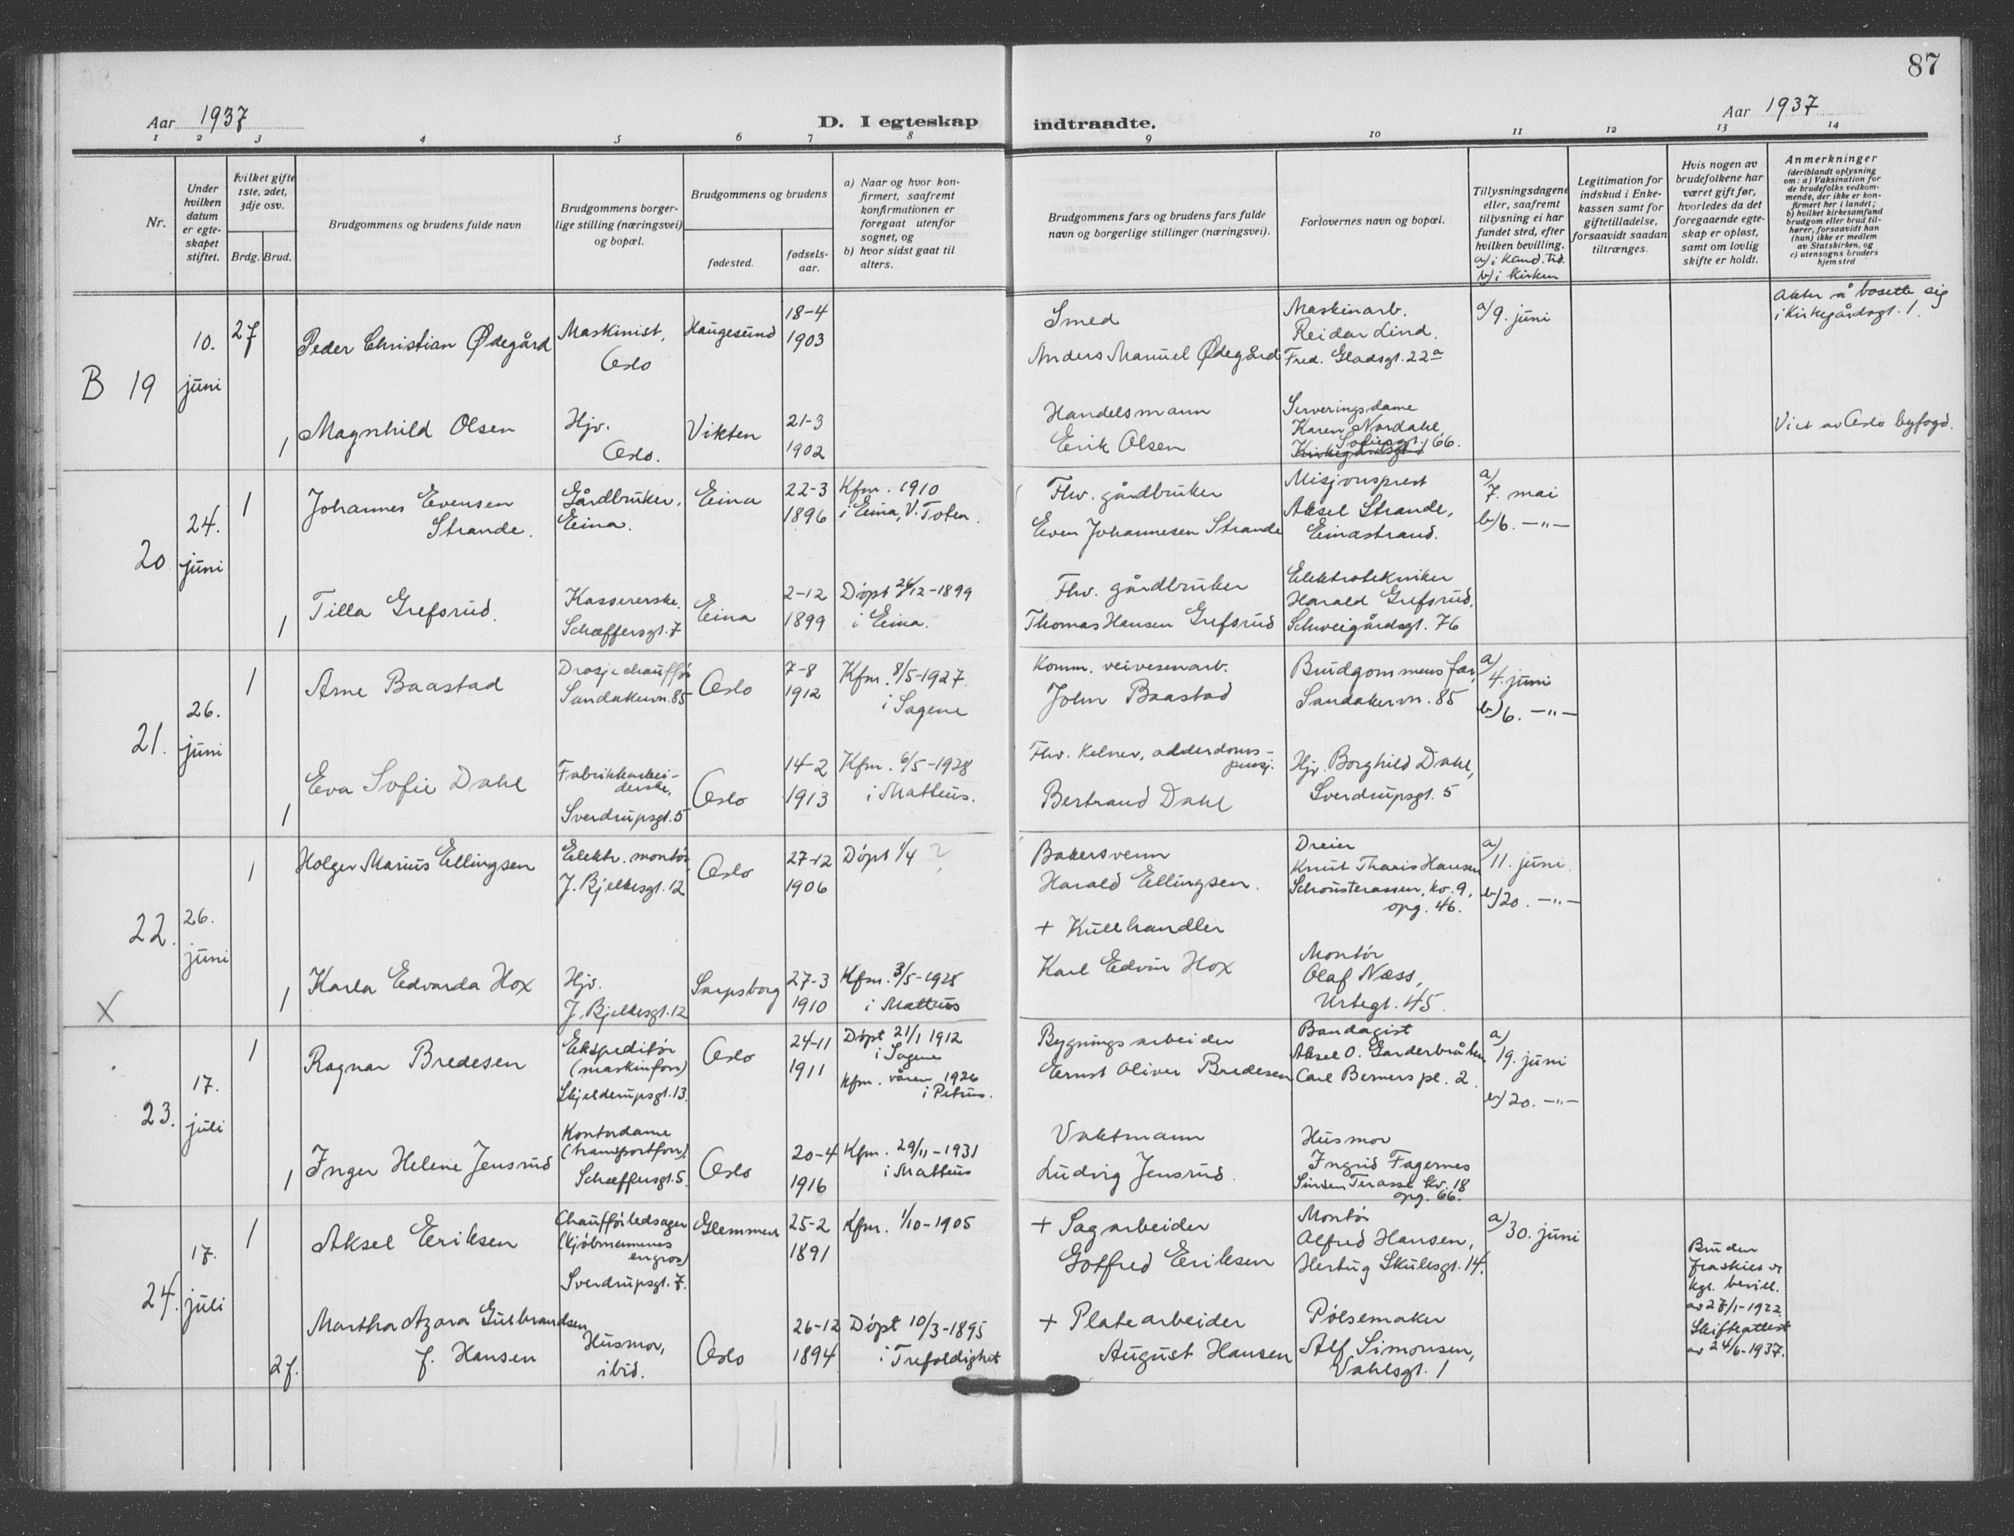 87
Aar 1937
D. I egteskap
indtraadte.
Aar 1937
1 2 3 4 5 6 7 8 9 10 11 12 13 14
Nr.
Under hvilken datum er egteskapet stiftet.
hvilket gifte 1ste, 2det, 3dje osv.
Brdg. Brud.
Brudgommens og brudens fulde navn
Brudgommens borgerlige stilling (næringsvei) og bopæl.
Brudgommens og brudens
fødested.
fødselsaar.
a) Naar og hvor konfirmert, saafremt konfirmationen er foregaat utenfor sognet, og
b) hvor sidst gaat til alters.
Brudgommens fars og brudens fars fulde navn og borgerlige stillinger (næringsvei).
Forlovernes navn og bopæl.
Tillysningsdagene eller, saafremt tillysning ei har fundet sted, efter hvilken bevilling.
a) i Kand. tid.
b) i kirken
Legitimation for indskud i Enkekassen samt for giftetilladelse, forsaavidt saadan tiltrænges.
Hvis nogen av brudefolkene har været gift før, hvorledes da det foregaaende egteskap er opløst, samt om lovlig skifte er holdt.
Anmerkninger
(deriblandt oplysning om: a) Vaksination for de brudefolks vedkommende, der ikke er konfirmert her i landet;
b) hvilket kirkesamfund brudgom eller brud tilhører, forsaavidt han (hun) ikke er medlem av Statskirken, og
c) utensogns bruders hjemsted
B 19
10. juni
2f
Peder Christian Ødegård
Maskinist,
Oslo
Haugesund
18-4
1903
Smed
Anders Manuel Ødegård
Maskinarb.
Reidar Lind.
Fred. Gladsgt. 22a
a/ 9. juni
Akter å bosette sig
i Kirkegårdsgt. 1.
1
Magnhild Olsen
Hjv.
Oslo.
Vikten
21-3
1902
Handelsmann
Erik Olsen
Serveringsdame
Karen Nordahl,
Sofiesgt. 66.
Viet av Oslo byfogd.
20
24. juni
1
Johannes Evensen
Strande.
Gårdbruker,
Eina.
Eina
22-3
1896
Kfm. 1910
i Eina, V. Toten.
Fhv. gårdbruker
Even Johannesen Strande
Misjonsprest
Aksel Strande,
Einastrand.
a)
7. mai
b/6. -"-
1
Tilla Grefsrud.
Kassererske,
Schæffersgt. 7
Eina
2-12
1899
Døpt 26/12-1899
i Eina.
Fhv. gårdbruker
Thomas Hansen Grefsrud
Elektrotekniker
Harald Grefsrud,
Schweigårdsgt. 76
21.
26. juni
1
Arne Baastad
Drosjechauffør
Sandakervn. 85
Oslo
7-8
1912
Kfm. 8/5-1927
i Sagene
Komm. veivesenarb.
John Baastad
Brudgommens far,
Sandakervn. 85
a)
4. juni
b) 6. -"-
1
Eva Sofie Dahl
Fabrikkarbei-
derske,
Sverdrupsgt. 5
Oslo
14-2
1913
Kfm. 6/5-1928
i Matteus.
Fhv. kelner, alderdoms-
pensj.
Bertrand Dahl
Hjv. Borghild Dahl,
Sverdrupsgt. 5
22.
26. juni
1
Holger Marius Ellingsen
Elektr. montør
J. Bjelkesgt. 12
Oslo
27-12
1906
Døpt 1/4 ?
Bakersvenn
Harald Ellingsen.
Dreier
Knut Hansen
Schousterassen, ko. 9,
opg. 46.
a)
11. juni
b) 20. -"-
X
1
Karla Edvarda Hox
Hjv.
J. Bjelkesgt. 12
Sarpsborg
27-3
1910
Kfm. 3/5-1925
i Matteus
+ Kullhandler
Karl Edvin Hox
Montør
Olaf Næss,
Urtegt. 45.
23.
17. juli
1
Ragnar Bredesen
Ekspeditør
(maskinforr.)
Skjelderupsgt. 13.
Oslo
24-11
1911
Døpt 21/1 1912
i Sagene
Kfm. våren 1926
i Petrus.
Bygningsarbeider
Ernst Oliver Bredesen
Bandagist
Aksel O. Garderbråten
Carl Berners pl. 2.
a)
19. juni
b) 20. -"-
1
Inger Helene Jensrud
Kontordame
(transportforr.)
Schæffersgt. 5.
Oslo
20-4
1916
Kfm. 29/11-1931
i Matteus
Vaktmann
Ludvig Jensrud.
Husmor
Ingrid Fagernes
Sinsen Terasse kv. 18
opg. 66.
24.
17. juli
1
Aksel Eriksen
Chaufførledsager
(kjøbmennenes
engros)
Sverdrupsgt. 7.
Glemmen
25-2
1891
Kfm. 1/10-1905
+ Sagarbeider
Gotfred Eriksen
Montør
Alfred Hansen,
Hertug Skulesgt. 14.
a)
30. juni
Bruden
fraskilt v.
kgl. bevill.
av 27/1-1922.
Skifteattest
av 24/6-1937.
2f.
Martha Azora Gulbrandsen
f. Hansen
Husmor,
ibid.
Oslo
26-12
1894
Døpt 10/3-1895
i Trefoldighet
+ Platearbeider
August Hansen
Pølsemaker
Alf Simonsen,
Vahlsgt. 1